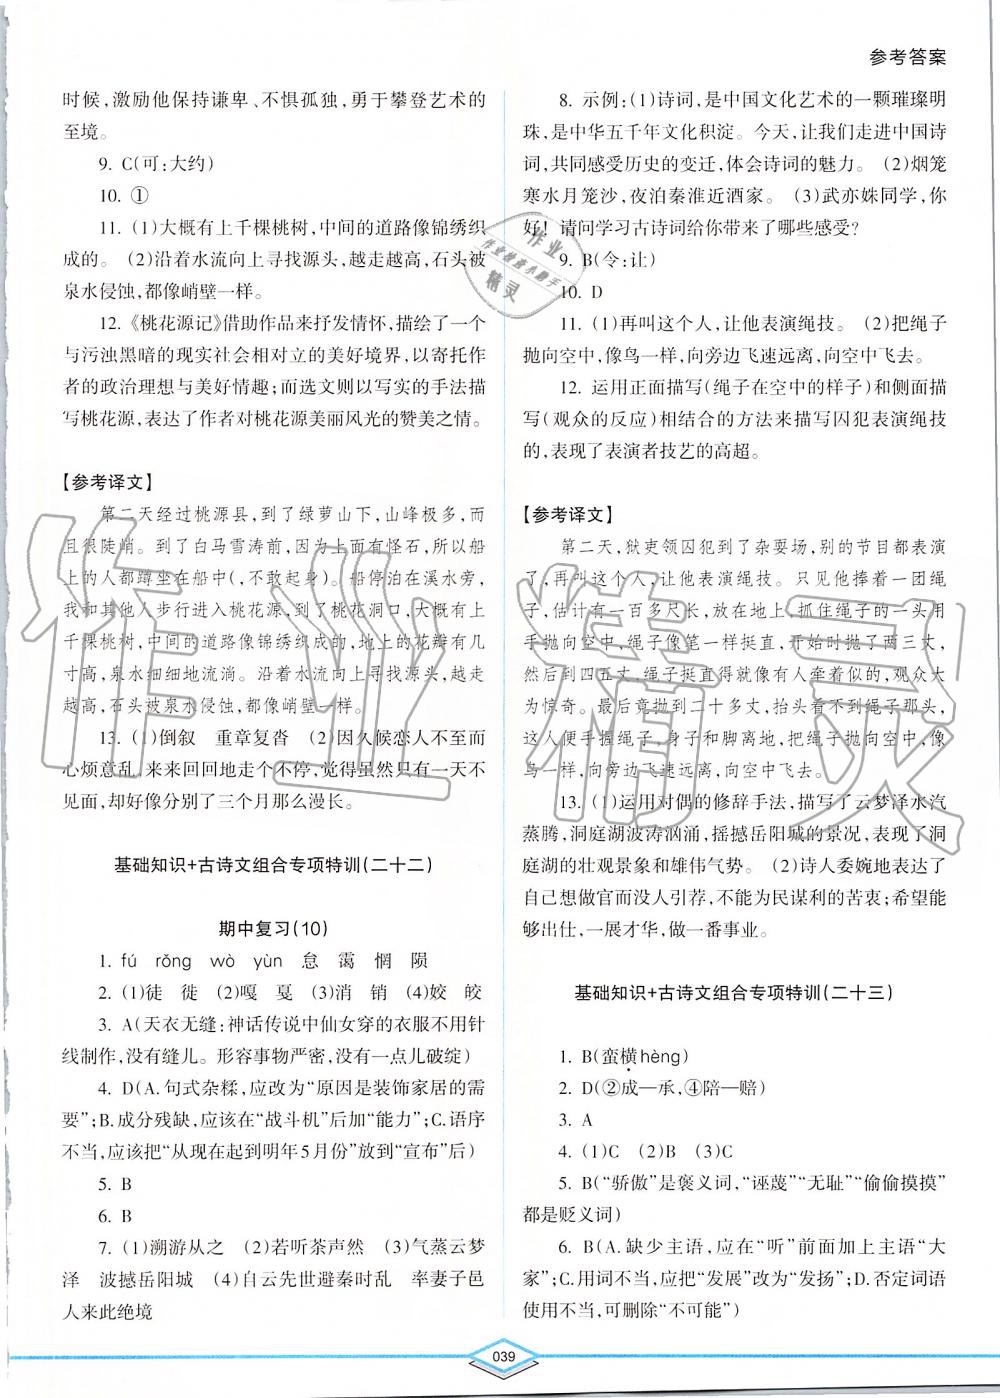 参考答案
时候,激励他保持谦卑、不惧孤独,勇于攀登艺术的
至境。
9. C(可:大约)
10. ①
11. (1)大概有上千棵桃树,中间的道路像锦绣织
成的。 (2)沿着水流向上寻找源头,越走越高,石头被
泉水侵蚀,都像峭壁一样。
12.《桃花源记》借助作品来抒发情怀,描绘了一个
与污浊黑暗的现实社会相对立的美好境界,以寄托作
者的政治理想与美好情趣;而选文则以写实的手法描
写桃花源,表达了作者对桃花源美丽风光的赞美之情。
【参考译文】
第二天经过桃源县,到了绿萝山下,山峰极多,而
且很陡峭。到了白马雪涛前,因为上面有怪石,所以船
上的人都蹲坐在船中(,不敢起身)。船停泊在溪水旁,
我和其他人步行进入桃花源,到了桃花洞口,大概有上
千棵桃树,中间的道路像锦绣织成的,地上的花瓣有几
寸高,泉水细细地流淌。沿着水流向上寻找源头,越走
越高,石头被泉水侵蚀,都像峭壁一样。
13. (1)倒叙 重章复沓 (2)因久候恋人不至而
心烦意乱,来来回回地走个不停,觉得虽然只有一天不
见面,却好像分别了三个月那么漫长。
基础知识+古诗文组合专项特训(二十二)
期中复习(10)
1. fú rǒng wò yùn 怠 霭 惘 陨
2. (1)徒 徙 (2)嘎 戛 (3)消 销 (4)姣 皎
3. A(天衣无缝:神话传说中仙女穿的衣服不用针
线制作,没有缝儿。形容事物严密,没有一点儿破绽)
4. D(A.句式杂糅,应改为“原因是装饰家居的需
要”;B.成分残缺,应该在“战斗机”后加“能力”;C.语序
不当,应该把“从现在起到明年5月份”放到“宣布”后)
5. B
6. B
7. (1)溯游从之 (2)若听茶声然 (3)气蒸云梦
泽 波撼岳阳城 (4)自云先世避秦时乱 率妻子邑
人来此绝境
8. 示例:(1)诗词,是中国文化艺术的一颗璀璨明
珠,是中华五千年文化积淀。今天,让我们走进中国诗
词,共同感受历史的变迁,体会诗词的魅力。 (2)烟笼
寒水月笼沙,夜泊秦淮近酒家。 (3)武亦姝同学,你
好!请问学习古诗词给你带来了哪些感受?
9. B(令:让)
10. D
11. (1)再叫这个人,让他表演绳技。 (2)把绳子
抛向空中,像鸟一样,向旁边飞速远离,向空中飞去。
12. 运用正面描写(绳子在空中的样子)和侧面描
写(观众的反应)相结合的方法来描写囚犯表演绳技
的,表现了表演者技艺的高超。
【参考译文】
第二天,狱吏领囚犯到了杂耍场,别的节目都表演
了,再叫这个人,让他表演绳技。只见他捧着一团绳
子,估计有一百多尺长,放在地上,抓住绳子的一头用
手抛向空中,绳子像笔一样挺直,开始时抛了两三丈,
然后到四五丈,绳子挺直得像有人牵着似的,观众大
为惊奇。最后竟抛到二十多丈,抬头看不到绳子那头,
这人便手握绳子,身子和脚离地,把绳子抛向空中,像
鸟一样,向旁边飞速远离,向空中飞去。
13. (1)运用对偶的修辞手法,描写了云梦泽水汽
蒸腾,洞庭湖波涛汹涌,摇撼岳阳城的景况,表现了洞
庭湖的壮观景象和雄伟气势。 (2)诗人委婉地表达了
自己想做官而没人引荐,不能为民谋利的苦衷;希望能
够出仕,一展才华,做一番事业。
基础知识+古诗文组合专项特训(二十三)
1. B(蛮横hèng)
2. D(②成—承,④陪—赔)
3. A
4. (1)C (2)B (3)C
5. B(“骄傲”是褒义词,“诬蔑”“无耻”“偷偷摸摸”
都是贬义词)
6. B(A.缺少主语,应在“听”前面加上主语“大
家”;C.用词不当,应把“发展”改为“发扬”;D.否定词语
使用不当,可删除“不可能”)
039
作业精灵